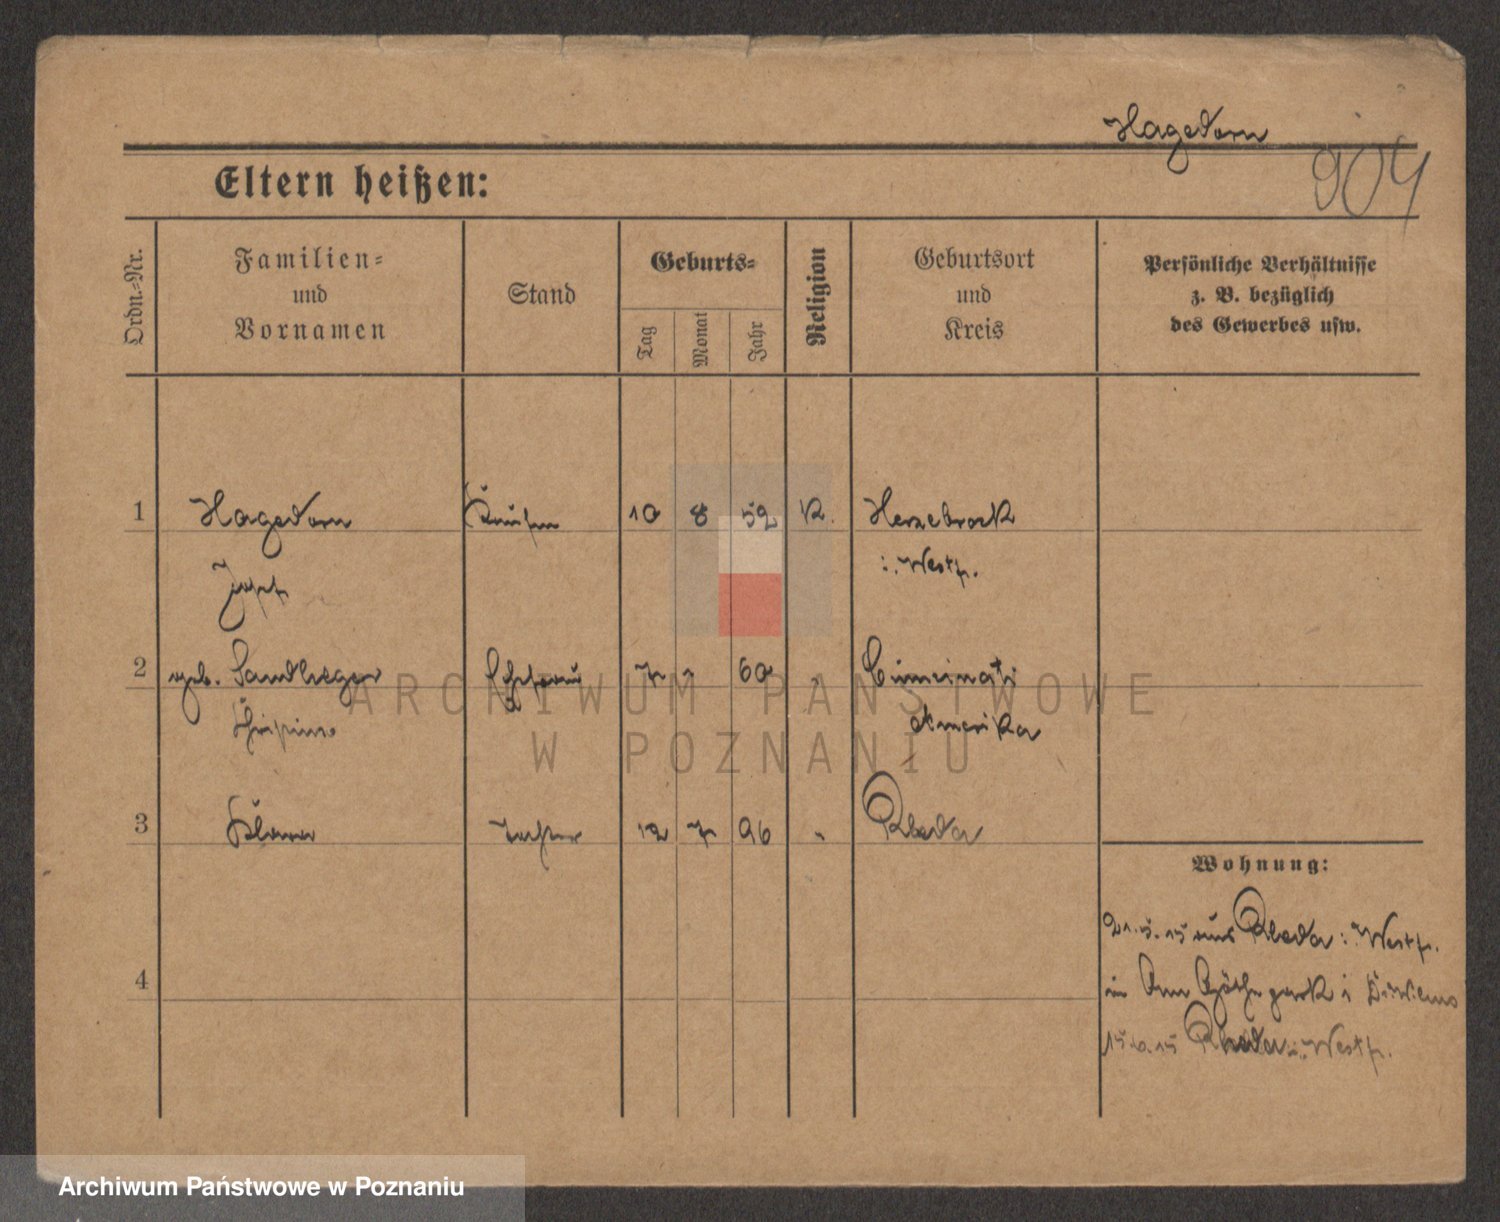 Hagedorn
904
Eltern heißen:
Ordn.-Nr.
Familien-
und
Vornamen
Stand
Geburts-
Tag
Monat
Jahr
Religion
Geburtsort
und
Kreis
Persönliche Verhältnisse
z. B. bezüglich
des Gewerbes usw.
1 Hagedorn Kaufm 10 8 59 K. Herzebrock
Josef i. Westf.
2 geb. Sandheger Ehefrau 7 1 60 " Cinncinati
Amerika
3 Klara Tochter 12 7 96 " Rheda
Wohnung:
21.5.15 aus Rheda i. Westf.
4
in Am park
Rheda i. Westf.
ARCHIWUM PAŃSTWOWE
W POZNANIU
Archiwum Państwowe w Poznaniu